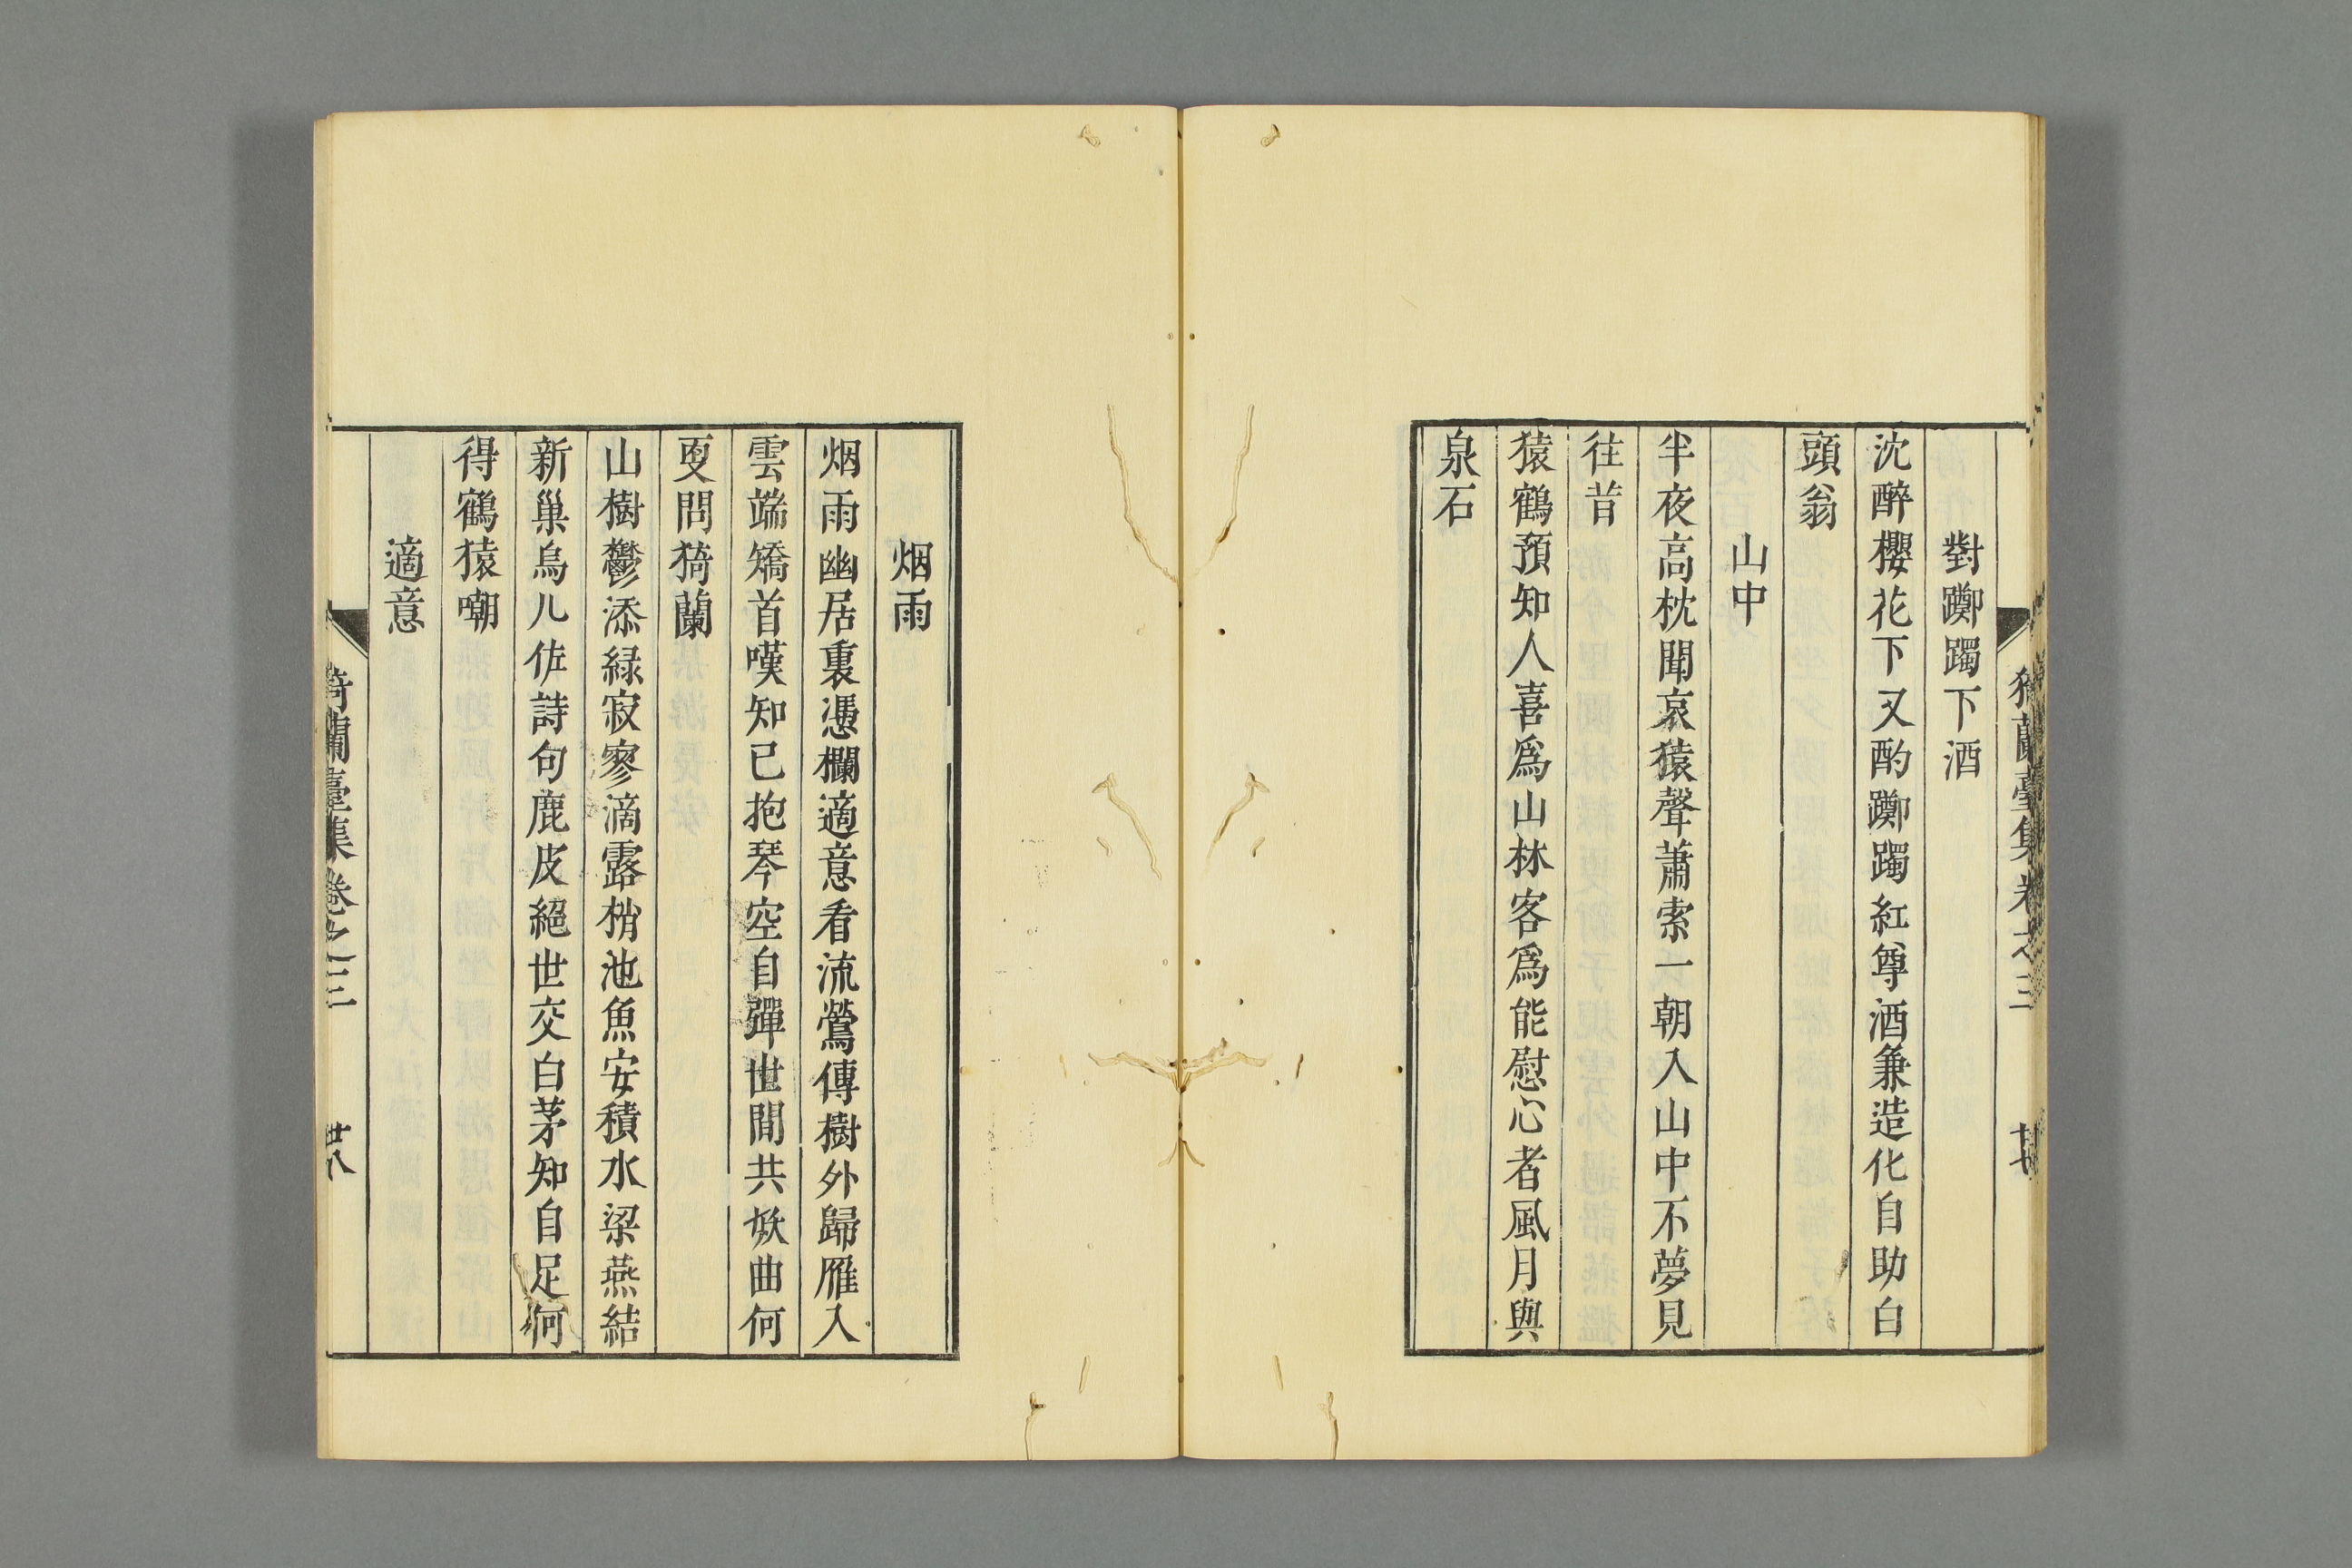 猗蘭臺集卷之三 廿七
對躑躅下酒
沈醉櫻花下又酌躑躅紅尊酒兼造化自助白
頭翁
山中
半夜高枕聞哀猿聲蕭索一朝入山中不夢見
往昔
猿鶴預知人喜爲山林客爲能慰心者風月與
泉石
烟雨
烟雨幽居裏憑欄適意看流鶯傳樹外歸雁入
雲端矯首嘆知已抱琴空自彈世間共妖曲何
更問猗蘭
山樹鬱添緑寂寥滴露梢池魚安積水梁燕結
新巢烏几佐詩句鹿皮絕世交白茅知自足何
得鶴猿嘲
適意
猗蘭臺集卷之三 廿八